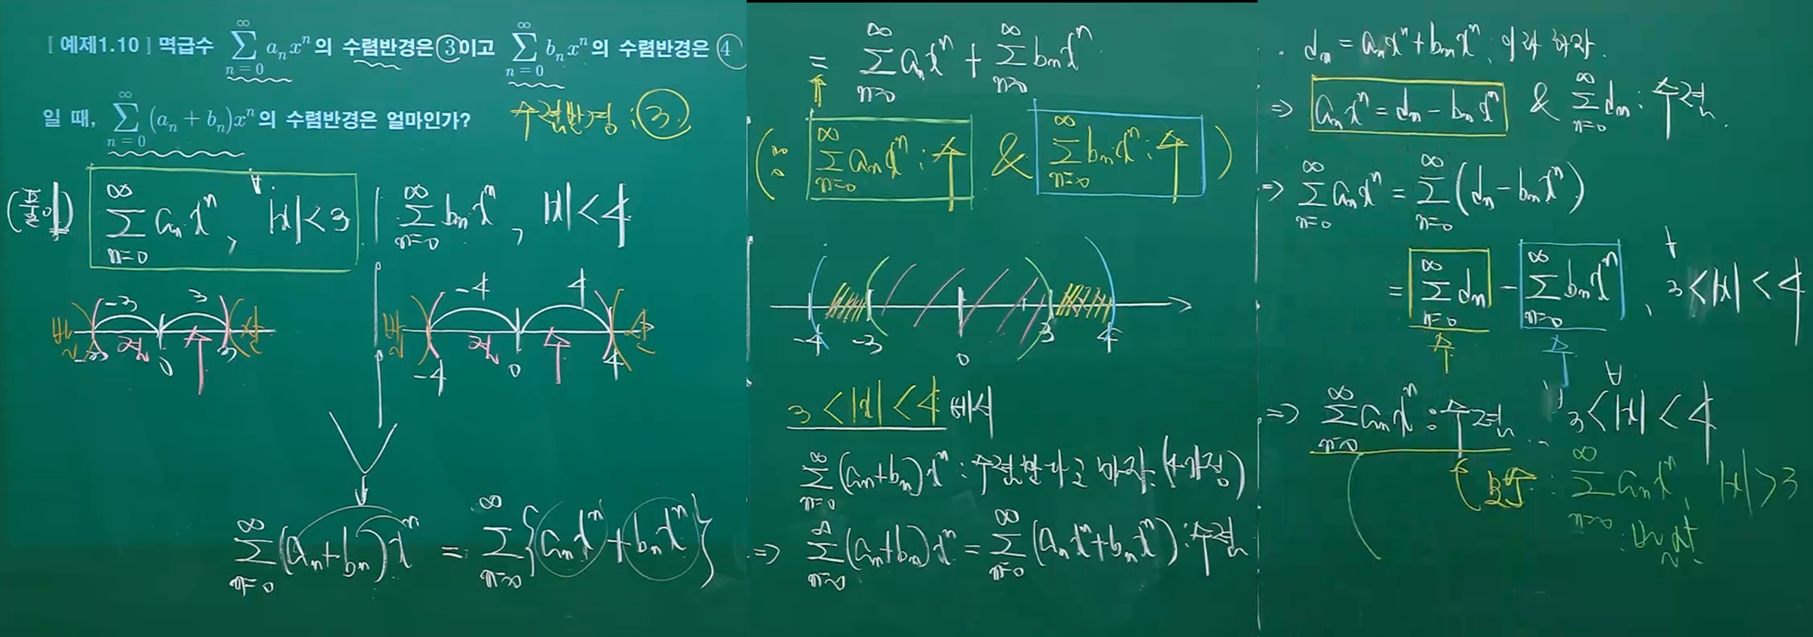 [ 예제1.10 ] 멱급수 $\sum_{n=0}^{\infty} a_n x^n$의 수렴반경은 ③이고 $\sum_{n=0}^{\infty} b_n x^n$의 수렴반경은 ④
일 때, $\sum_{n=0}^{\infty} (a_n + b_n)x^n$의 수렴반경은 얼마인가? 수렴반경 : ③
(풀이) $\sum_{n=0}^{\infty} a_n x^n$, ∀ |x| < 3 | $\sum_{n=0}^{\infty} b_n x^n$, |x| < 4
-3 3
발 -3 수렴 0 3 발산
-4 4
발 -4 수렴 0 4
$\sum_{n=0}^{\infty} (a_n + b_n)x^n = \sum_{n=0}^{\infty} \{a_n x^n + b_n x^n\}$
$= \sum_{n=0}^{\infty} a_n x^n + \sum_{n=0}^{\infty} b_n x^n$
(∵ $\sum_{n=0}^{\infty} a_n x^n$ : 수 & $\sum_{n=0}^{\infty} b_n x^n$ : 수)
-4 -3 0 3 4
3 < |x| < 4 에서
$\sum_{n=0}^{\infty} (a_n + b_n)x^n$ : 수렴한다고 하자. (가정)
⇒ $\sum_{n=0}^{\infty} (a_n + b_n)x^n = \sum_{n=0}^{\infty} (a_n x^n + b_n x^n)$ : 수렴
· $d_n = a_n x^n + b_n x^n$ 이라 하자.
⇒ $a_n x^n = d_n - b_n x^n$ & $\sum_{n=0}^{\infty} d_n$ : 수렴.
⇒ $\sum_{n=0}^{\infty} a_n x^n = \sum_{n=0}^{\infty} (d_n - b_n x^n)$
$= \sum_{n=0}^{\infty} d_n - \sum_{n=0}^{\infty} b_n x^n$, ∀ 3 < |x| < 4
수 수
⇒ $\sum_{n=0}^{\infty} a_n x^n$ : 수렴 ∀ 3 < |x| < 4
(모순 : $\sum_{n=0}^{\infty} a_n x^n$, |x| > 3
: 발산